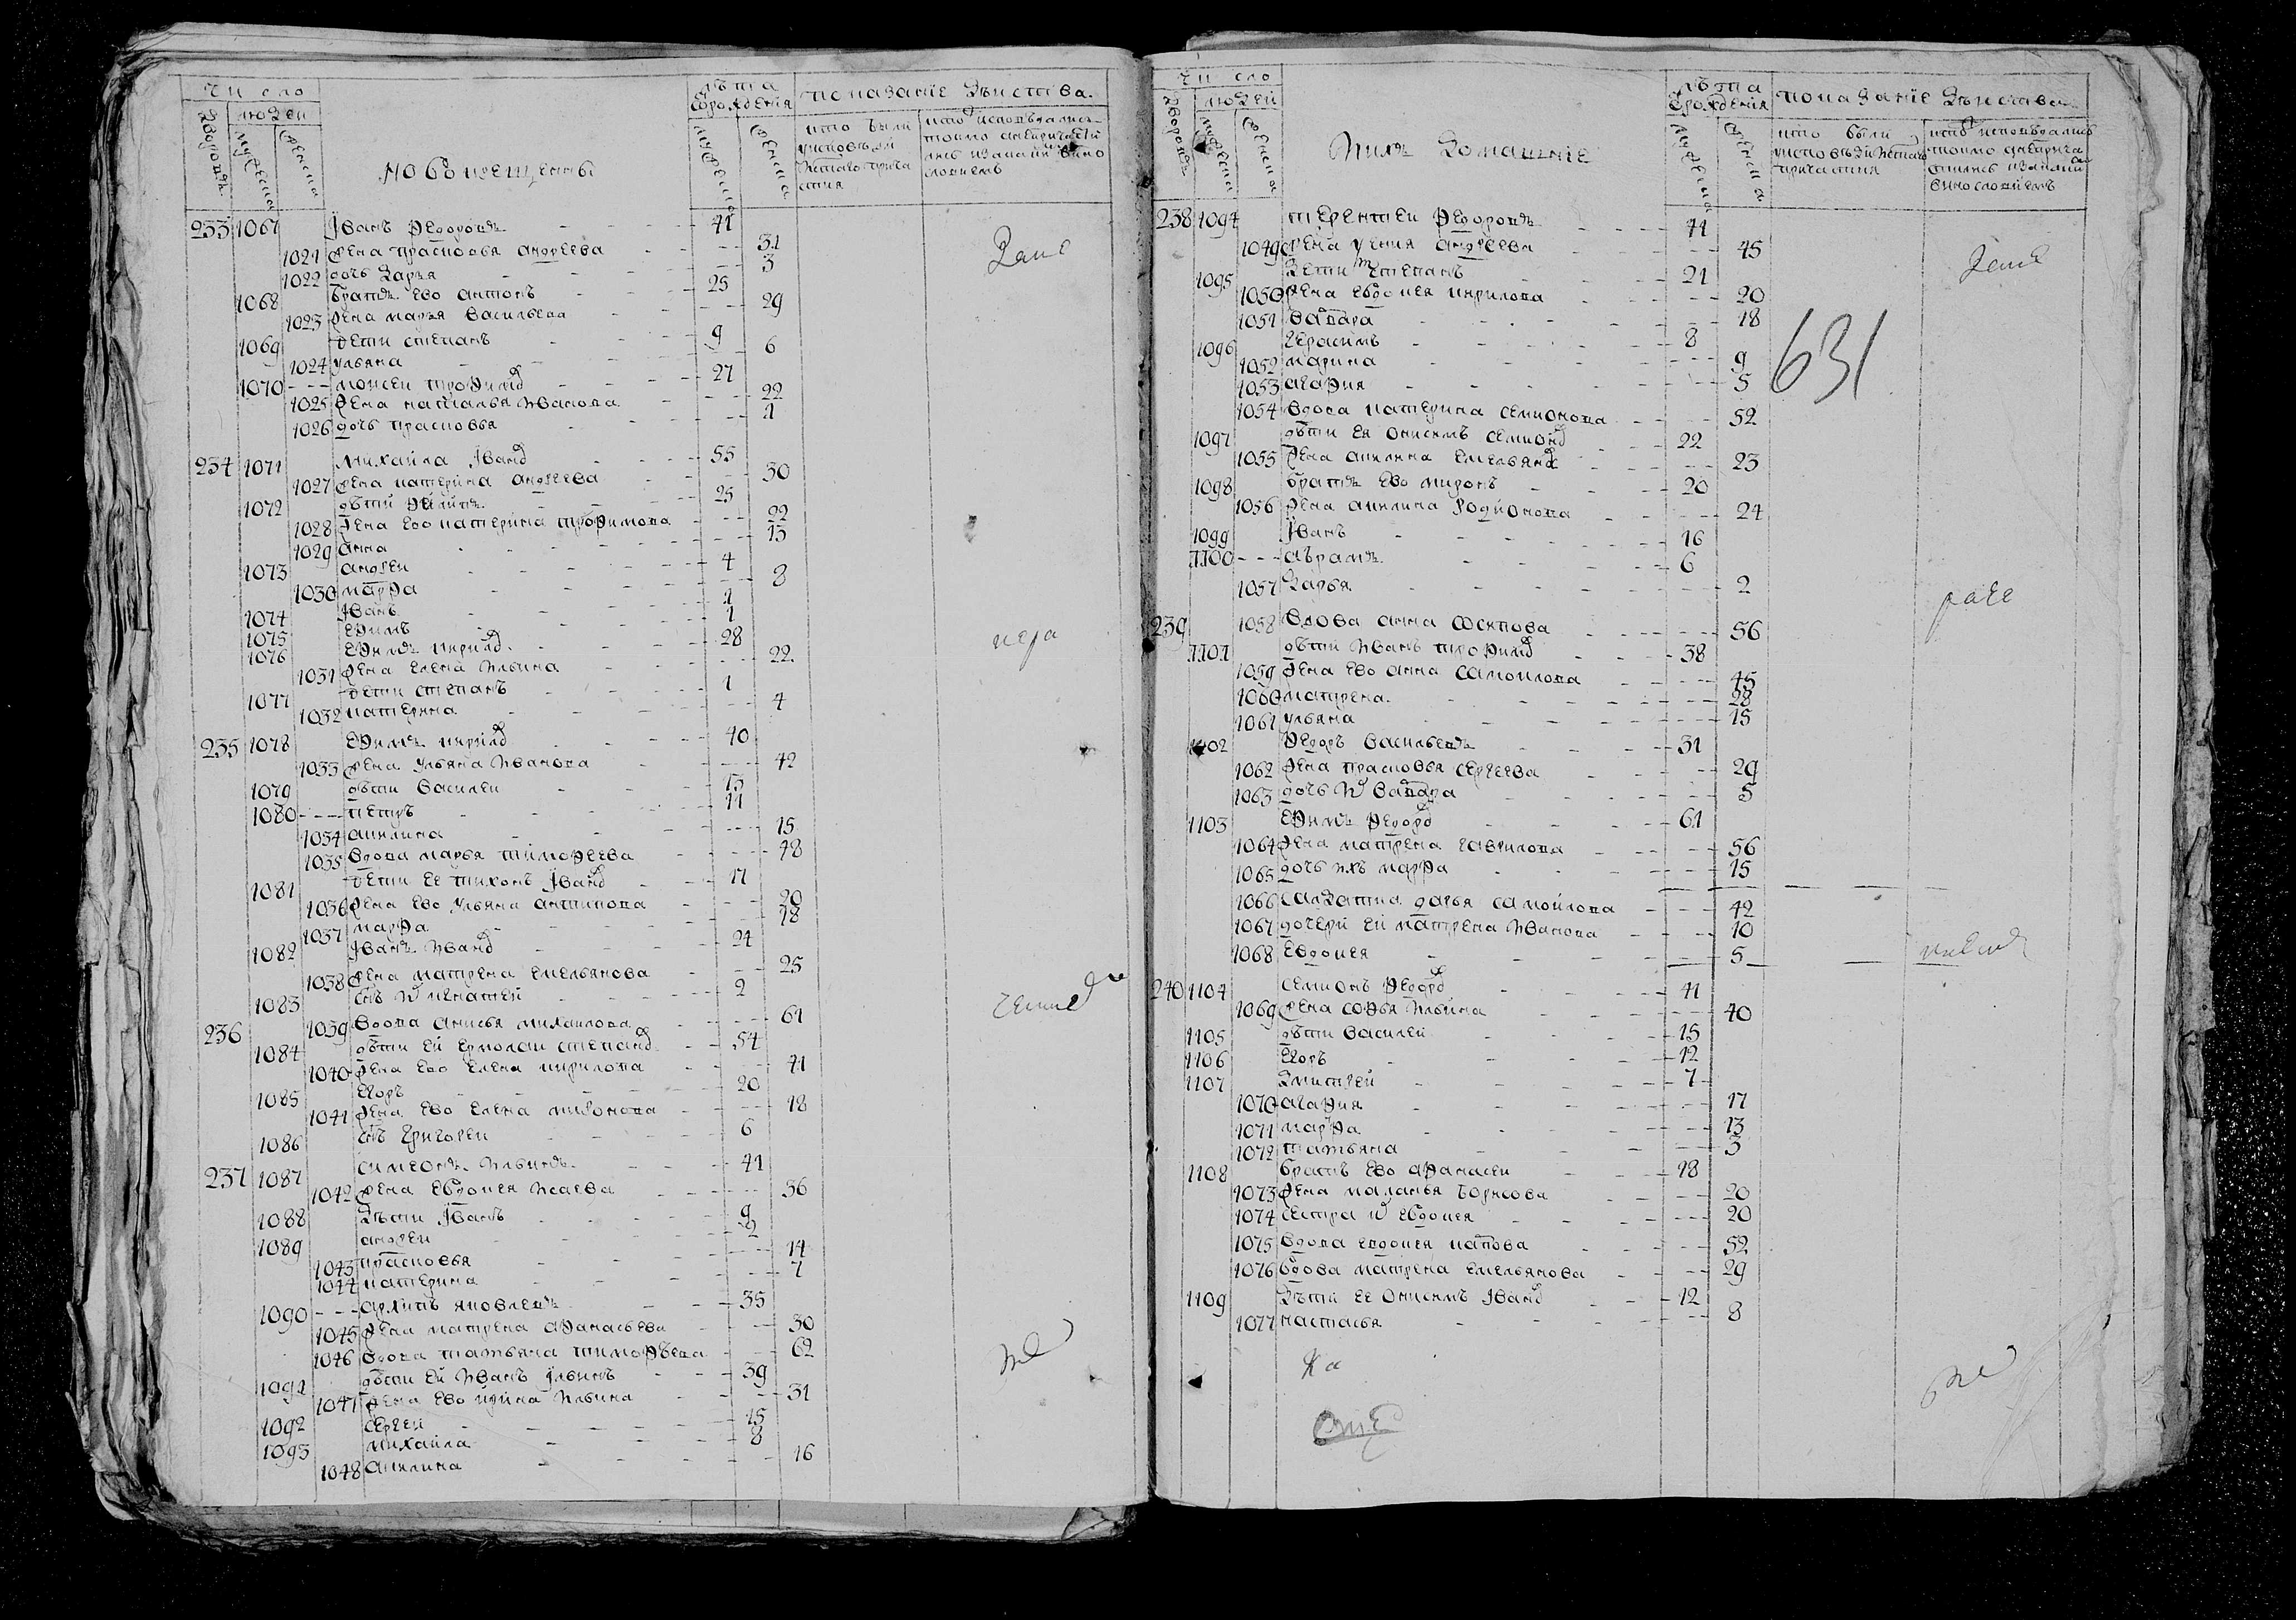 число
дворовъ
людей
мужеска
женска
новокрещенны
лѣта
срождения
мужеска
женска
показанїе дѣйства.
кто были
у исповѣди
и стаго прича
стия
233 1067 Їванъ Ѳедоровъ 41
1021 жена прасковья андреева 31
1022 дочь дарья 3
1068 братъ ево антонъ 25
1023 жена марья васильева 29
1069 дети степанъ 9
1024 ульяна 6
1070 моисеи трофимов 27
1025 жена наталья иванова 22
1026 дочь прасковья 1
234 1071 михаила Їванов 55
1027 жена катерина андреева 30
1072 дѣти 25
1028 жена ево катерина трофимова 22
1029 анна 13
1073 андреи 4
1030 марфа 8
1074 Їванъ 1
1075 ефимъ 1
1076 ефимъ кирилов 28
1031 жена елена ильина 22
1077 дети степанъ 1
1032 катерина 4
235 1078 ефимъ кирилов 40
1033 жена ульяна иванова 42
1079 дѣти василеи 13
1080 петръ 11
1034 акилина 15
1035 вдова марья тимофеева 48
1081 дети ее тихонъ Їванов 17
1036 жена ево ульяна антипова 20
1037 марфа 18
1082 Їванъ иванов 24
1038 жена матрена емельянова 25
1083 снъ игнатей 2
236 1039 вдова анисья михаилова 61
1084 дѣти ей ермолаи степанов 54
1040 жена ево елена кирилова 41
1085 егоръ 20
1041 жена ево елена миронова 18
1086 снъ григореи 6
237 1087 симеонъ ильинъ 41
1042 жена евдокея исаева 36
1088 дѣти Їванъ 9
1089 андреи 2
1043 прасковья 14
1044 катерина 7
1090 архипъ яковлевъ 35
1045 жена матрена афанасьева 30
1046 вдова татьяна тимофѣева 62
1091 дѣти ей иванъ ульинъ 39
1047 жена ево ирина ильина 31
1092 сергеи 15
1093 михаила 8
1048 акилина 16
число
дворовъ
людей
мужеска
женска
ихъ домашнїе
лѣта
срождения
мужеска
женска
показанїе дѣйства
кто были
у исповѣди и стаго
причастия
238 1094 терентеи Ѳедоровъ 41
1049 жена андреева 45
1095 дети степанъ 21
1050 жена евдокея кирилова 20
1051 варвара 18
1096 герасимъ 8
1052 марина 9
1053 агафия 5
1054 вдова катерина семионова 52
1097 дѣти ея онисимъ семионов 22
1055 жена акилина емельянова 23
1098 братъ ево миронъ 20
1056 жена акилина родионова 24
1099 Їванъ 16
1100 абрамъ 6
1057 дарья 2
239 1058 вдова анна осипова 56
1101 дѣти иванъ трофимов 38
1059 жена ево анна самоилова 45
1060 матрена 28
1061 ульяна 15
1102 Ѳедоръ васильевъ 31
1062 жена прасковья сергеева 29
1063 дочь их варвара 5
1103 ефимъ Ѳедоров 61
1064 жена матрена гаврилова 56
1065 дочь ихъ марфа 15
1066 салдатка дарья самоилова 42
1067 дочери ей матрена иванова 10
1068 евдокея 5
240 1104 семионъ Ѳедоров 41
1069 жена софья ильина 40
1105 дѣти василеи 15
1106 егоръ 12
1107 дмитреи 7
1070 агафия 17
1071 марфа 13
1072 татьяна 3
1108 братъ ево афанасеи 18
1073 жена маланья борисова 20
1074 сестра их евдокея 20
1075 вдова евдокея 52
1076 вдова матрена емельянова 29
1109 дѣти ее онисимъ Їванов 12
1077 настасья 8
631